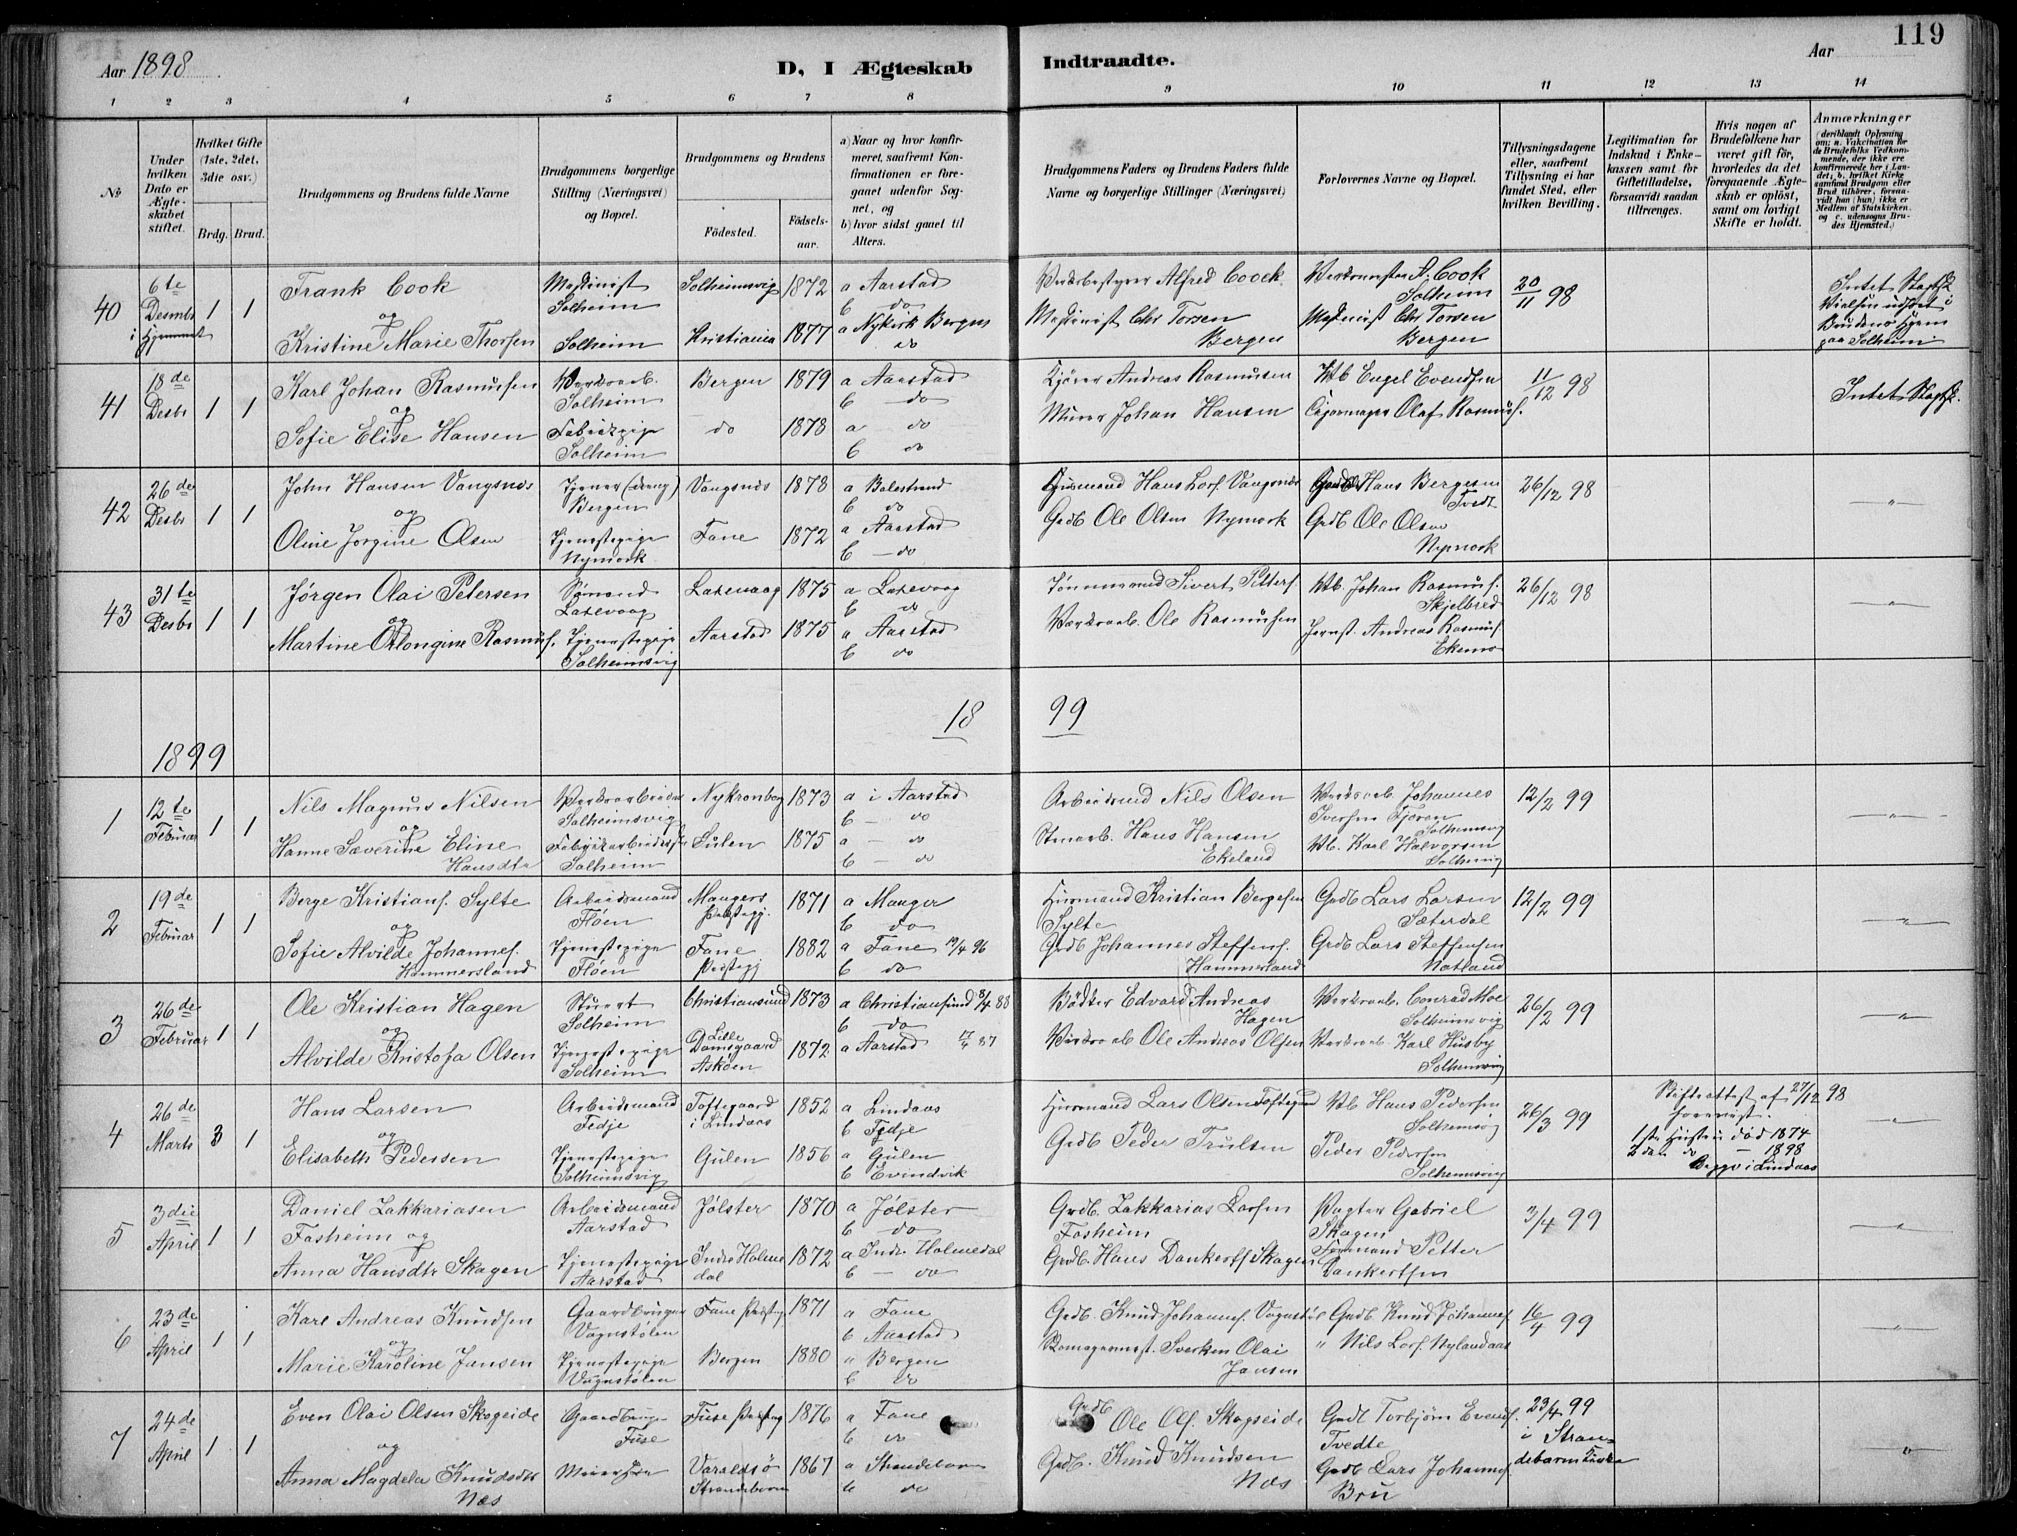 119
Aar 1898.
D, I Ægteskab
Indtraadte.
Aar
1 2 3 4 5 6 7 8 9 10 11 12 13 14
No
Under hvilken Dato er Ægteskabet stiftet.
Hvilket Gifte (1ste, 2det, 3die osv.)
Brdg. Brud.
Brudgommens og Brudens fulde Navne
Brudgommens borgerlige Stilling (Næringsvei) og Bopæl.
Brudgommens og Brudens
Fødested.
Fødselsaar.
a) Naar og hvor konfirmeret, saafremt Konfirmationen er foregaaet udenfor Sognet, og
b) hvor sidst gaaet til Alters.
Brudgommens Faders og Brudens Faders fulde Navne og borgerlige Stillinger (Næringsvei)
Forlovernes Navne og Bopæl.
Tillysningsdagene eller, saafremt Tillysning ei har fundet Sted, efter hvilken Bevilling.
Legitimation for Indskud i Enkekassen samt for Giftetilladelse, forsaavidt saadan tiltrænges.
Hvis nogen af Brudefolkene har været gift før, hvorledes da det foregaaende Ægteskab er opløst, samt om lovligt Skifte er holdt.
Anmærkninger
(deriblandt Oplysning om: a. Vakcination for de Brudefolks Vedkommende, der ikke ere konfirmerede her i Landet; b. hvilket Kirkesamfund Brudgom eller Brud tilhører, forsaavidt han (hun) ikke er Medlem af Statskirken, og c. udensogns Brudes Hjemsted.)
40 6te Desmbr i Hjemmet 1 1
Frank Cook
og
Kristine Marie Thorsen
Maskinist Solheim
Solheim
Solheimsvig 1872
Kristiania 1877
a Aarstad
b do
a Nykirk Bergen
do
Værkbestyrer Alfred Coock
Maskinist Chr Torsen Bergen
Verksmester A. Cook Solheim
Maskinist Chr Torsen Bergen
20/11 98
Intet Slagtsk.
Vielsen udført i Brudens Hjem paa Solheim
41 18de Desbr 1 1
Karl Johan Rasmussen
og
Sofie Elise Hansen
Verksarb. Solheim
Fabrikpige Solheim
Bergen 1879
do 1878
a Aarstad
b do
a do
b do
Kjører Andreas Rasmusen
Murer Johan Hansen
Vb Engel Evendsen
Cigarmager Olaf Rasmus.
11/12 98
Intet Slagtsk.
42 26de Desbr 1 1
John Hansen Vangsnæs
og
Oline Jorgine Olsen
Tjener (dreng) Bergen
Tjenestepige Nymark
Vangsnæs 1878
Fane 1872
a Balestrand
b do
a Aarstad
b do
Husmand Hans Lars. Vangsnæs
Grdb Ole Olsen Nymark
Grdb Hans Bergesen Tvedt
Grdb Ole Olsen Nymark
26/12 98
43 31te Desbr 1 1
Jørgen Olai Petersen
og
Martine Olongine Rasmus.
Sømand Laxevaag
Tjenestepige Solheimsvig
Laxevaag 1875
Aarstad 1875
a Laxevaag
b do
a Aarstad
b do
Tømmermand Sivert Petters.
Værksarb. Ole Rasmussen
Vb. Johan Rasmus. Skjelbred
Jernst. Andreas Rasmus. Ekemo
26/12 98
18 99
1899
1 12te Februar 1 1
Nils Magnus Nilsen
og
Hanne Sæverine Eline Hansdtr
Verksarbeider Solheimsvig
Fabrikarbeiderske Solheim
Nykronborg 1873
Sulen 1875
a i Aarstad
b do
a do
b do
Arbeidsmd Nils Olsen
Stenarb. Hans Hansen Ekeland
Verksarb. Johannes Iversen Fjøren Solhemsvig
Vb. Karl Halvorsen Solhemsvig
12/2 99
2 19de Februar 1 1
Berge Kristians. Sylte
og
Sofie Alvilde Johannes. Hammersland
Arbeidsmand Fløen
Tjenestepige Fløen
Mangers Præstegj. 1871
Fane Præstegj 1882
a Manger
b do
a Fane 19/4 96
b do
Husmand Kristian Bergesen Sylte
Grdb Johannes Steffens. Hammerland
Grdb Lars Larsen Sæterdal
Grdb Lars Steffensen Natland
12/2 99
3 26de Februar 1 1
Ole Kristian Hagen
og
Alvilde Kristofa Olsen
Stuert Solheim
Tjenestepige Solheim
Christiansund 1873
Lille Damsgaard Askøen 1872
a Christiansund 8/4 88
b do
a Aarstad 17/4 87
Bødker Edvard Andreas Hagen
Værksarb Ole Andreas Olsen
Verksarb. Conrad Moe Solheimsvig
Verksarb. Karl Husby Solhemsvig
26/2 99
4 26de Marts 3 1
Hans Larsen
og
Elisabeth Pedersen
Arbeidsmand Fedje
Tjenestepige Solheimsvig
Toftegaard i Lindaas 1852
Gulen 1856
a Lindaas
b Fedje
a Gulen
b Evindvik
Husmand Lars Olsen Toftegaard
Grdb Peder Trulsen
Vb Hans Pedersen Solhemsvig
Peder Pedersen Solhemsvig
26/3 99
Skifteattest af 27/12 98 forevist.
1ste Hustru død 1874
2den do – 1898
Begge i Lindaas
5 3die April 1 1
Daniel Zakkariasen Fosheim og
Anna Hansdtr Skagen
Arbeidsmand Aarstad
Tjenestepige Aarstad
Jølster 1870
Indre Holmedal 1872
a Jølster
b do
a Indr. Holmedal
b do
Grdb. Zakkarias Larsen Fosheim
Grdb. Hans Dankerts. Skagen
Pagter Gabriel Skagen
Formand Petter Dankertsen
3/4 99
6 23de April 1 1
Karl Andreas Knudsen
og
Marie Karoline Jansen
Gaardbruger Vognstølen
Tjenestepige Vognstølen
Fane Prstgj 1871
Bergen 1880
a Fane
b Aarstad
" Bergen
b do
Grdb. Knud Johannes. Vognstøl
Sverken Olai Jansen
Grdb. Knud Johannes.
" Nils Lars. Nylandaas
16/4 99
7 24de April 1 1
Even Olai Olsen Skogseide
og
Anna Magdela Knudsdtr Næs
Gaardbruger Fuse
Fuse Prstgj 1876
Varaldsø Strandebarm 1867
a Fane
b do
a Strandebarm
b do
Grdb Ole Ols. Skogseide
Grdb. Knud Knudsen Næs
Grdb Torbjørn Evens. Tvedte
Grdb Lars Johannes. Bru
23/4 99
i Strandebarm Kirke